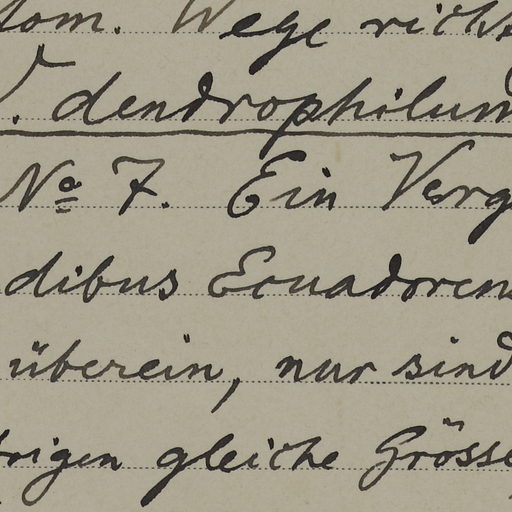 tom. Wege richt
V. dendrophilum
Nº 7. Ein Verg
dibus Ecuadorens
überein, nur sind
brigen gleiche Grösse